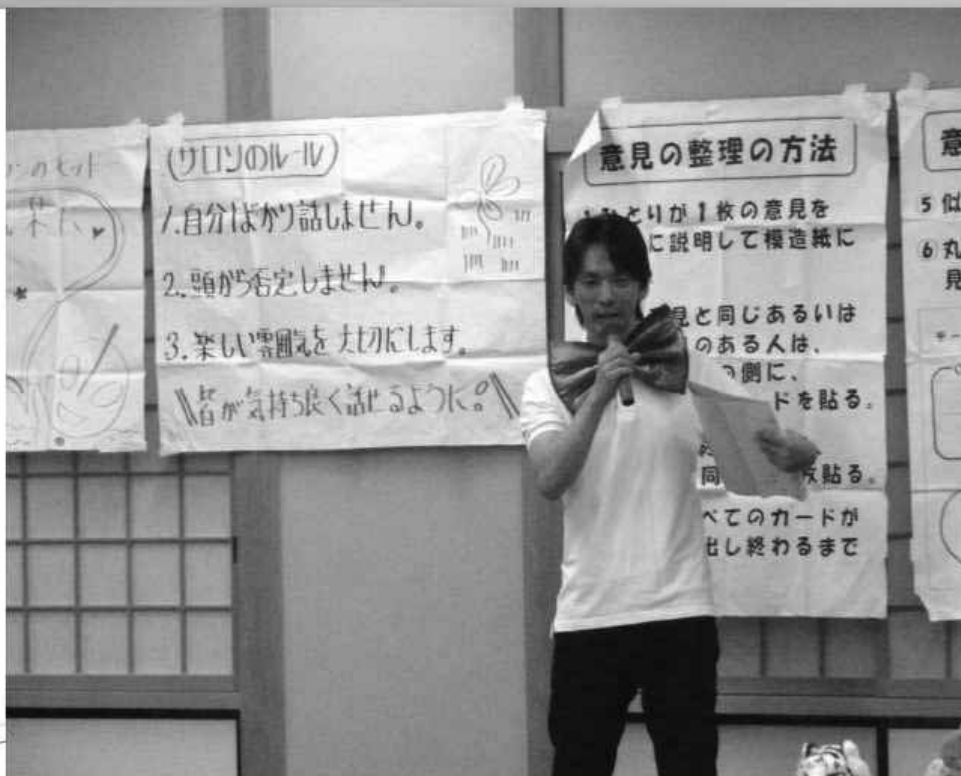 サロンのルール
1.自分ばかり話しません。
2.頭から否定しません。
3.楽しい雰囲気を大切にします。
\\皆が気持ち良く話せるように。\\
意見の整理の方法
とりが1枚の意見を
に説明して模造紙に
見と同じあるいは
のある人は、
の側に、
ドを貼る。
同
枚貼る。
べてのカードが
出し終わるまで
意
5 似
6 丸
見